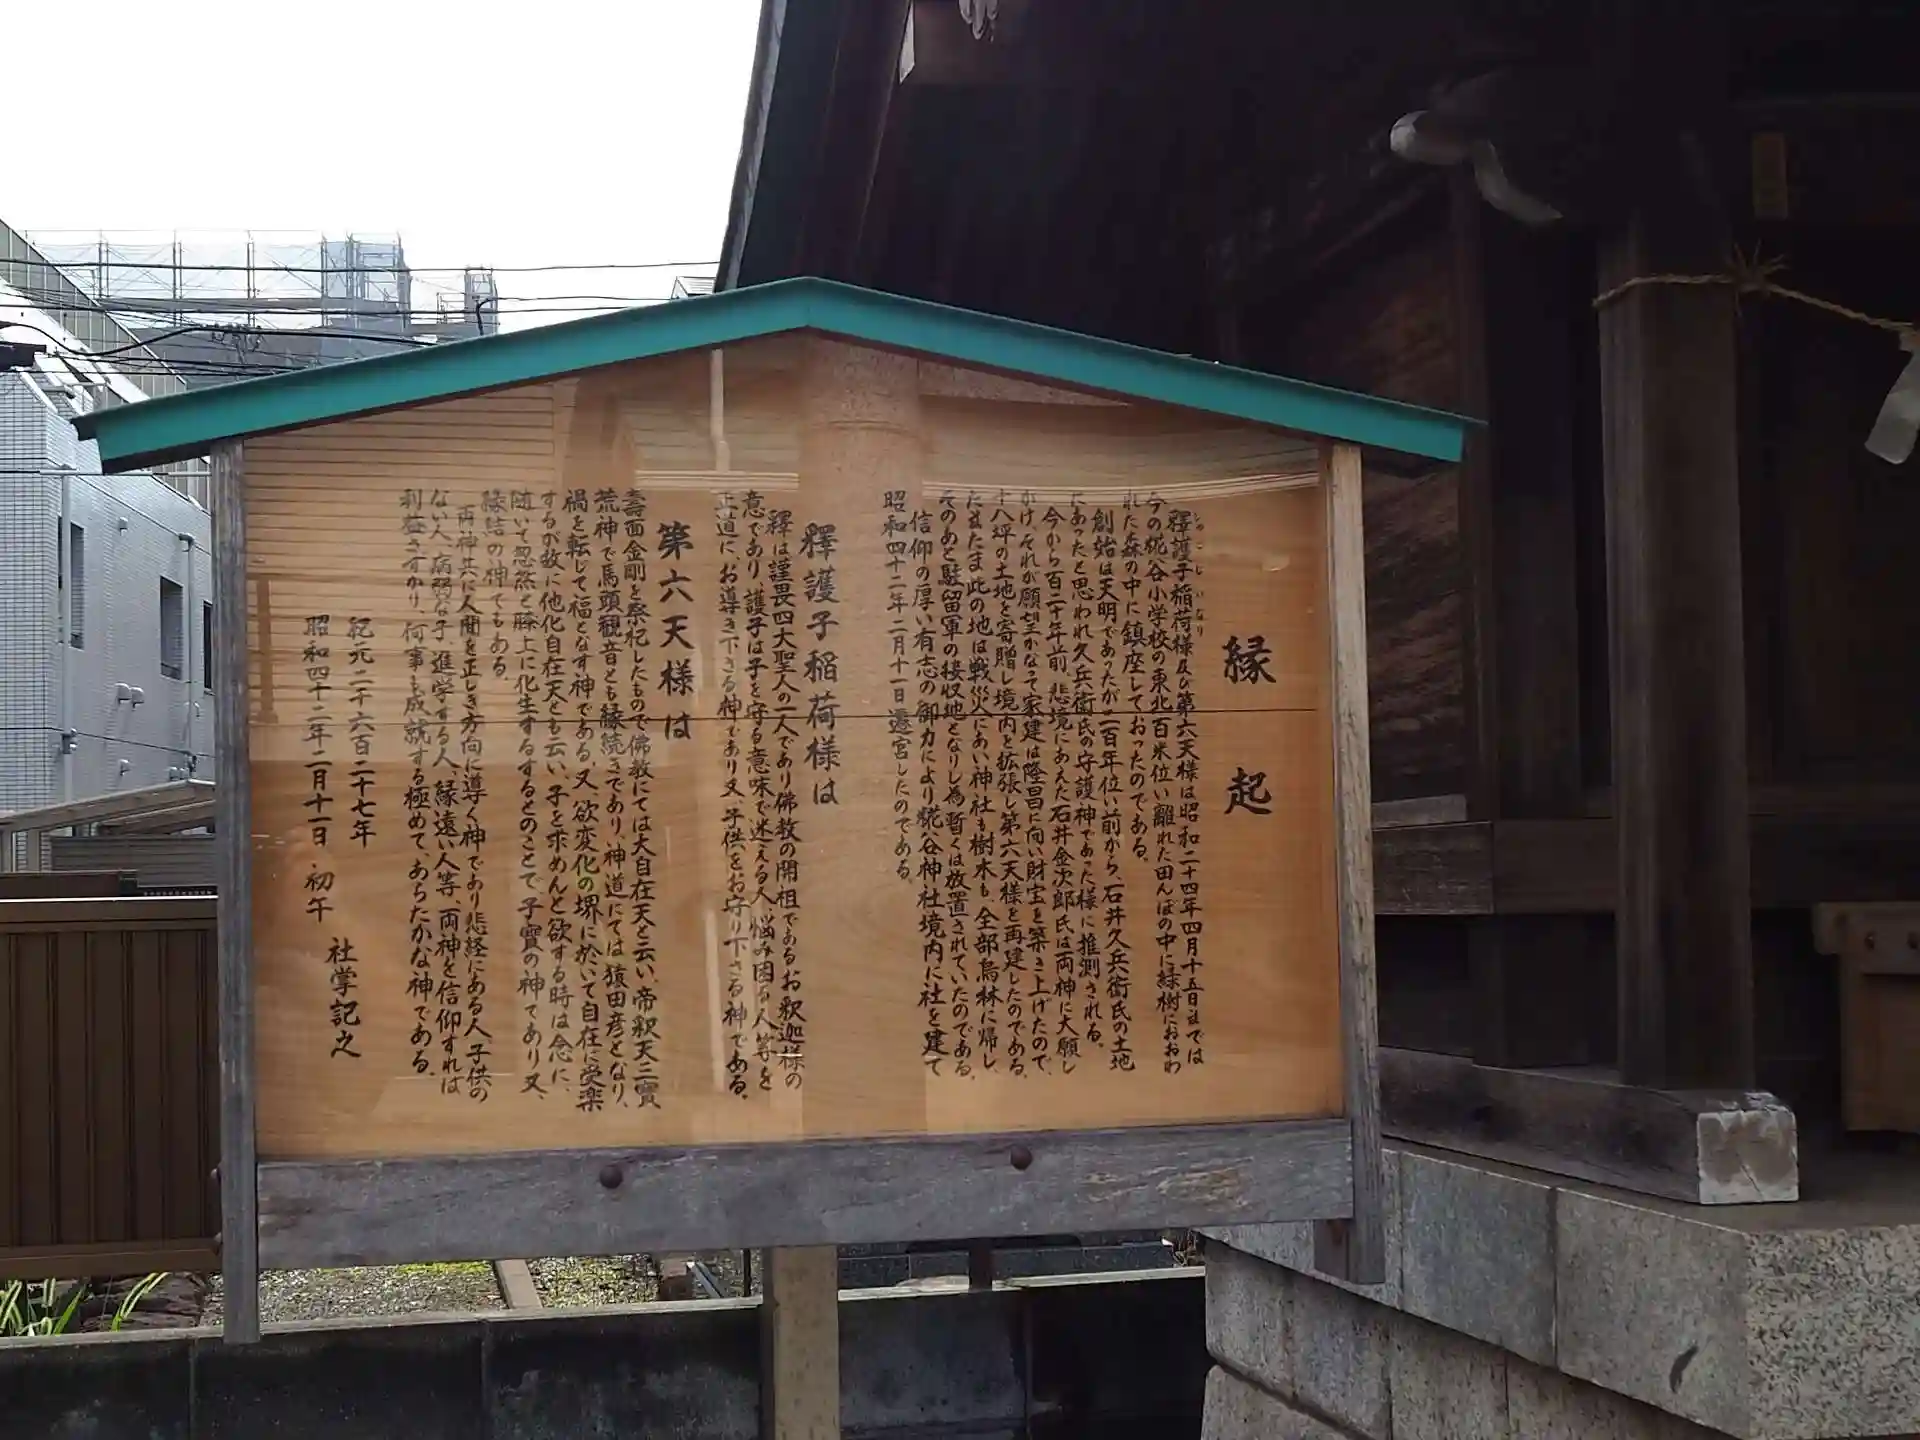 縁起
釋護子稲荷様及び第六天様は昭和二十四年四月十五日までは
しゃごじいなり
今の糀谷小学校の東北百米位い離れた田んぼの中に緑樹におおわ
れた森の中に鎮座しておったのである。
創始は天明であったが二百年位い前から、石井久兵衛氏の土地
にあったと思われ久兵衛氏の守護神であった様に推測される。
今から百二十年前、悲境にあえた石井金次郎氏は両神に大願し
かけ、それが願望かなって家運は隆昌に向い財宝を築き上げたので、
十八坪の土地を寄贈し境内を拡張し第六天様を再建したのである。
たまたま此の地は戦災にあい神社も樹木も、全部烏林に帰し、
そのあと駐留軍の接収地となりし為暫くは放置されていたのである。
信仰の厚い有志の御力により糀谷神社境内に社を建て
昭和四十二年二月十一日遷宮したのである。
釋護子稲荷様は
釋は謹畏四大聖人の一人であり佛教の開祖であるお釈迦様の
意であり、護子は子を守る意味で迷える人、悩み困る人等を
正道に、お導き下さる神であり又、子供をお守り下さる神である。
第六天様は
壽面金剛を祭祀したもので佛教にては大自在天と云い、帝釈天三寳
荒神で馬頭観音とも縁続きであり、神道にては猿田彦となり、
禍を転じて福となす神である、又、欲変化の堺に於いて自在に受楽
するが故に他化自在天とも云い、子を求めんと欲する時は念に、
随いて忽然と膝上に化生するするとのことで、子寳の神であり又、
縁結の神でもある。
両神共に人間を正しき方向に導く神であり悲経にある人、子供の
ない人、病弱な子、進学する人、縁遠い人等、両神を信仰すれば
利益さずかり、何事も成就する極めて、あらたかな神である。
紀元二千六百二十七年
昭和四十二年二月十一日 初午
社掌記之